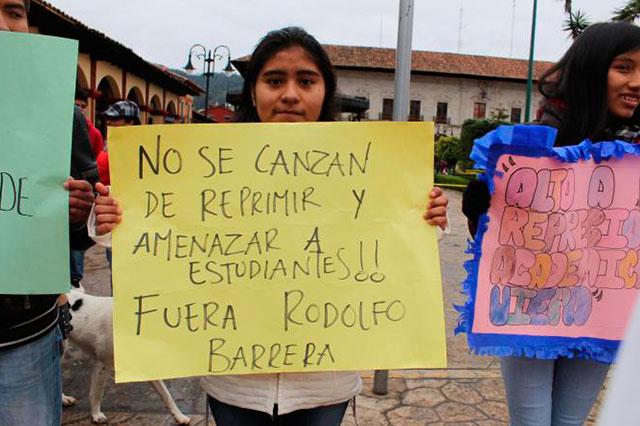 DE
NO SE CANZAN
DE REPRIMIR Y
AMENAZAR A
ESTUDIANTES!!
FUERA RODOLFO
BARRERA
"ALTO A
REPRESIO
ACADEMIC